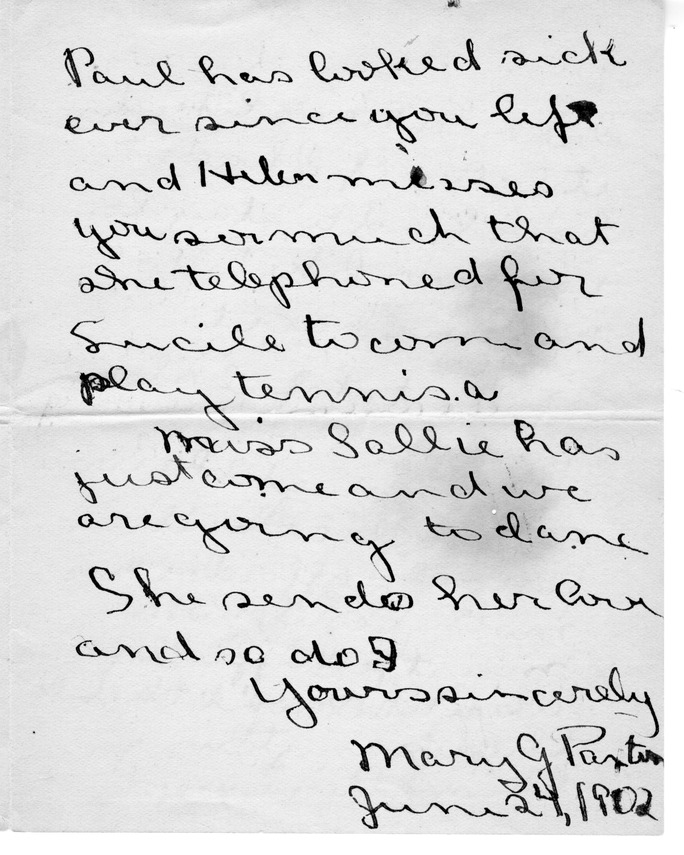 Paul has looked sick
ever since you left
and Helen misses
you so much that
she telephoned for
Lucile to come and
play tennis. a
Miss Sallie has
just come and we
are going to dance
She sends her love
and so do I
Yours sincerely
Mary G Paxton
June 24, 1902